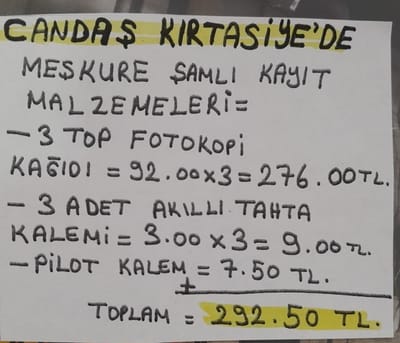 CANDAŞ KIRTASİYE'DE
MESKURE ŞAMLI KAYIT
MALZEMELERİ=
-3 TOP FOTOKOPİ
KAĞIDI = 92.00x3=276.00TL.
- 3 ADET AKILLI TAHTA
KALEMİ= 3.00 x 3= 9.00TL.
-PİLOT KALEM = 7.50 TL.
+
TOPLAM = 292.50 TL.